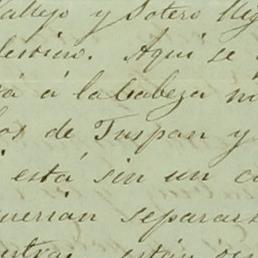 Vallejo y Sotero
Aquí se
á la Cabeza
os de Tuspan y
está sin un
querian separars
están